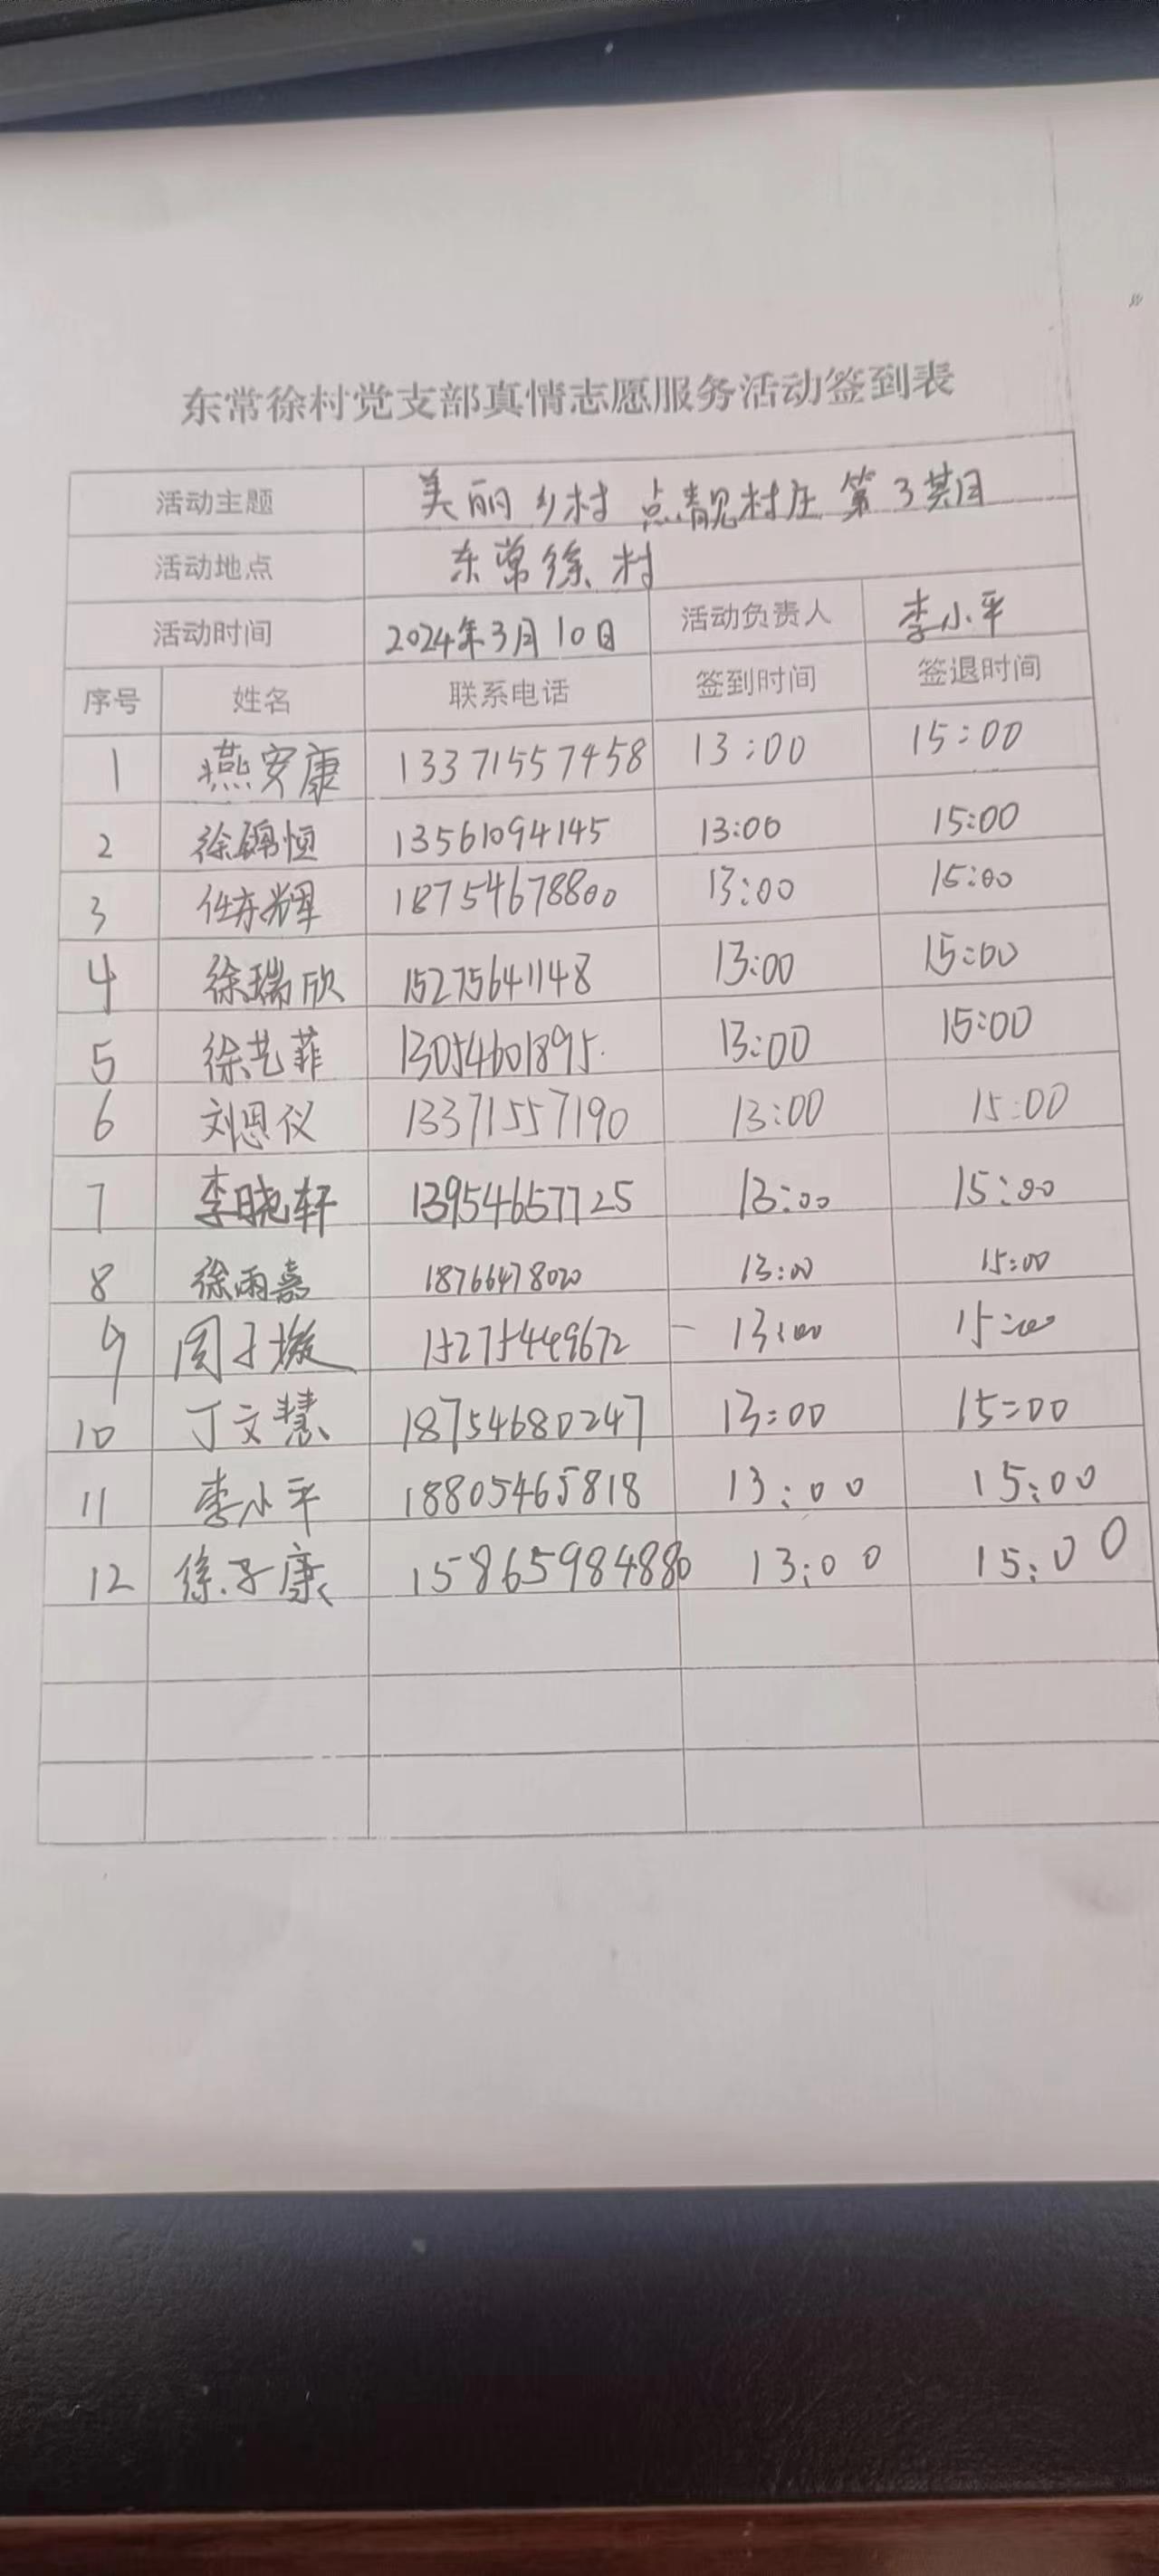 东常徐村党支部真情志愿服务活动签到表
活动主题 美丽乡村 点靓村庄 第3期
活动地点 东常徐村
活动时间 2024年3月10日 活动负责人 李小平
序号 姓名 联系电话 签到时间 签退时间
1 燕安康 13371557458 13:00 15:00
2 徐锦恒 13561094145 13:00 15:00
3 任东辉 18754678800 13:00 15:00
4 徐瑞欣 15275641148 13:00 15:00
5 徐艺菲 13054601895 13:00 15:00
6 刘恩仪 13371557190 13:00 15:00
7 李晓轩 13954657725 13:00 15:00
8 徐雨嘉 18766478020 13:00 15:00
9 周子璇 15275449672 13:00 15:00
10 丁文慧 18754680247 13:00 15:00
11 李小平 18805465818 13:00 15:00
12 徐子康 15865984880 13:00 15:00